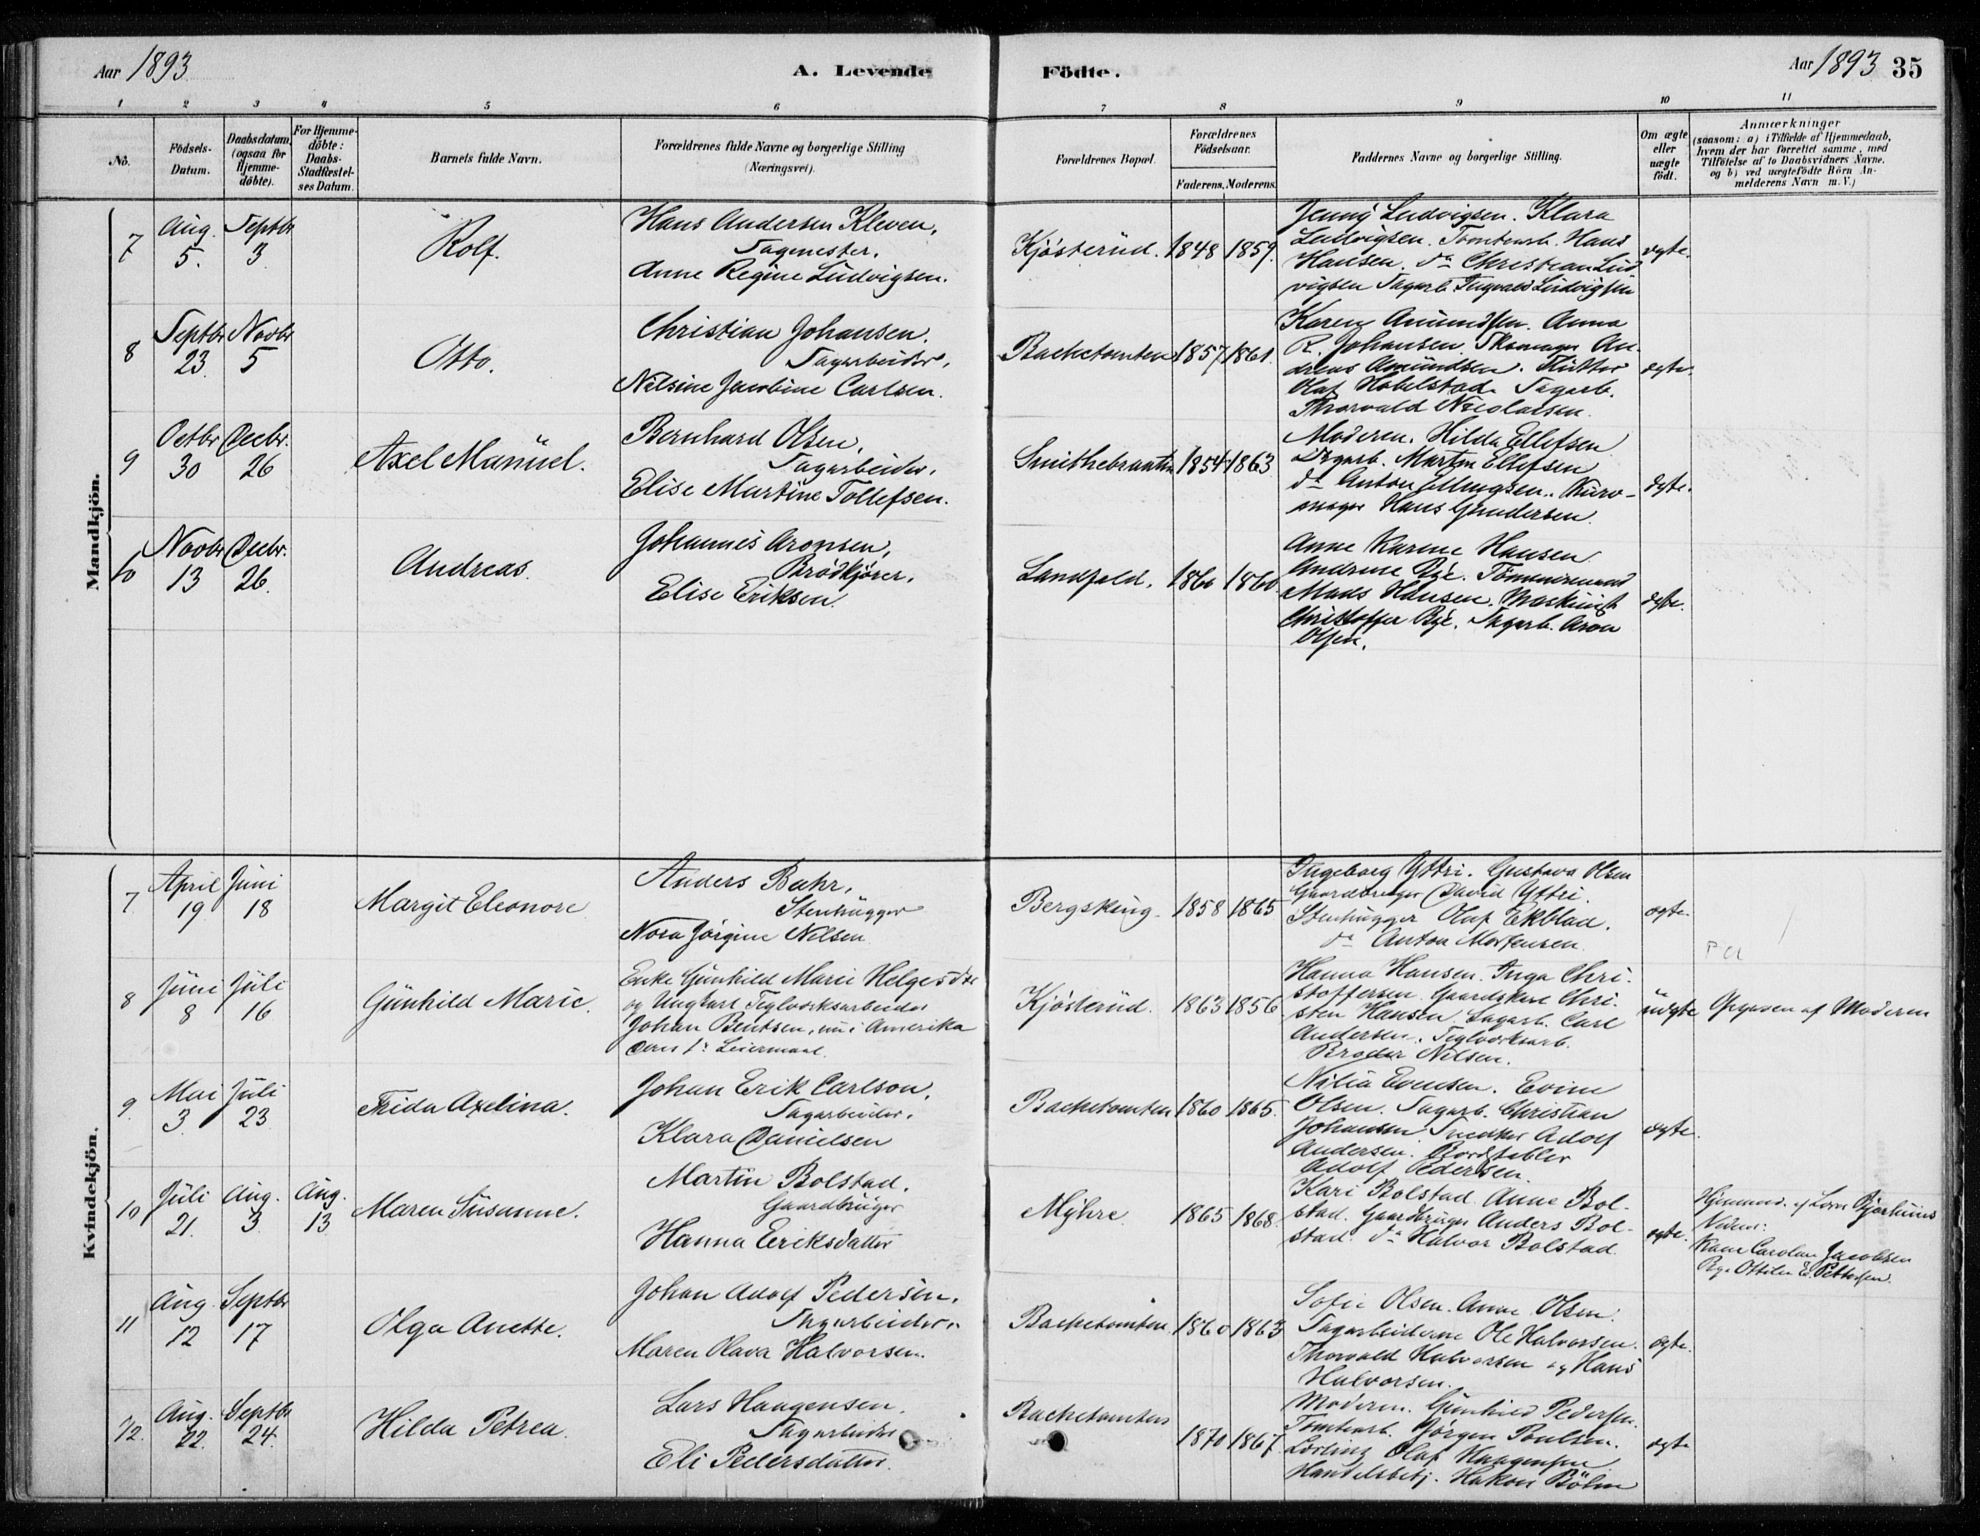 Aar 1893
A. Levende Födte.
Aar 1893 35
1 2 3 4 5 6 7 8 9 10 11
No.
Födsels-Datum.
Daabsdatum (ogsaa for Hjemme-döbte).
For Hjemme-döbte: Daabs-Stadfæstel-ses Datum.
Barnets fulde Navn.
Forældrenes fulde Navne og borgerlige Stilling (Næringsvei).
Forældrenes Bopæl.
Forældrenes Födselsaar.
Faderens. Moderens.
Faddernes Navne og borgerlige Stilling.
Om ægte eller uægte födt.
Anmærkninger
(saasom: a) i Tilfælde af Hjemmedaab,
hvem der har forrettet samme, med
Tilföielse af to Daabsvidners Navne,
og b) ved uægtefödte Börn An-
melderens Navn m. V.)
Mandkjön.
7 Aug. 5. Septbr 3 Rolf.
Hans Andersen Kleven,
Sagmester.
Anne Regine Ludvigsen.
Kjösterud. 1848 1859.
Jenny Ludvigsen. Klara
Ludvigsen. Tomtearb. Hans
Hansen. do Christian Lud
vigsen Sagarb. Ingvald Ludvigsen
ægte.
8 Septbr 23 Novbr 5 Otto.
Christian Johansen.
Sagarbeider.
Nilsine Jacobine Carlsen.
Bachetomten 1857 1861.
Karen Amundsen. Anna
R. Johansen. Skomager An-
dreas Amundsen.
Olaf Hobelstad. Sagarb.
Thorvald Nicolaisen.
ægte.
9 Octbr 30 Decbr. 26 Axel Manuel.
Bernhard Olsen,
Sagarbeider.
Elise Martine Tollefsen.
Smithebraaten 1854 1863
Moderen. Hilda Ellefsen
Sagarb. Martin Ellefsen
do Anton Ellingsen. Kurv-
mager Hans Gundersen.
ægte.
10 Novbr 13 Decbr. 26. Andreas.
Johannes Aronsen,
Brödkjörer.
Elise Eriksen.
Landfald. 1860 1860.
Anne Karine Hansen
Andrine Bye. Tömmermand
Mads Hansen. Maskinist
Christoffer Bye. Sagarb. Aron
Olsen.
ægte.
Kvindekjön.
7 April 19 Juni 18 Margit Eleonore
Anders Bahr,
Stenhugger
Nora Jörgine Nilsen
Bergskeug. 1858 1865
Ingeborg Yttri. Gustava Olsen
Gaardbruger David Yttri.
Stenhugger Olaf Ekblad.
do Anton Mortensen.
ægte.
8 Juni 8 Juli 16 Gunhild Marie.
Enke Gunhild Marie Helgesdtr
og Ungkarl Teglverksarbeider
Johan Bentsen, nu i Amerika
Deres 1ste Leiermaal.
Kjösterud. 1863 1856
Hanna Hansen. Inga Chri-
stoffersen. Gaardskarl Chri-
sten Hansen. Sagarb. Carl
Andersen. Teglverksarb.
Broder Nilsen.
uægte Opgivet af Moderen
9 Mai 3 Juli 23 Frida Axelina.
Johan Erik Carlson.
Sagarbeider.
Klara Danielsen
Bachetomten 1860 1865.
Nilia Evensen. Evine
Olsen. Sagarb. Christian
Johansen. Snedker Adolf
Andersen. Bordstabler
Adolf Pedersen.
ægte.
10 Juli 21. Aug. 3 Aug. 13 Maren Susanne.
Martin Bolstad.
Gaardbruger
Hanna Eriksdatter
Myhre 1865 1868.
Kari Bolstad. Anne Bol-
stad. Gaardbruger Anders Bol-
stad. do Halvor Bolstad.
ægte.
Hjemmed. af Lars Bjerknes
Vidner:
Karen Caroline Jacobsen
Pige Ottilie E. Pettersen.
11 Aug. 12 Septbr 17 Olga Anette.
Johan Adolf Pedersen.
Sagarbeider.
Maren Olava Halvorsen.
Bachetomten 1860 1863
Sofie Olsen. Anne Olsen.
Sagarbeiderne Ole Halvorsen.
Thorvald Halvorsen og Hans
Halvorsen.
ægte.
12. Aug. 22. Septbr 24. Hilda Petrea.
Lars Haagensen.
Sagarbeider
Eli Pedersdatter.
Bachetomten 1870 1867.
Moderen. Gunhild Pedersen.
Tomtearb. Jörgen Poulsen.
Lærling Olaf Haagensen
Handelsbetj. Hakon Böhm
ægte